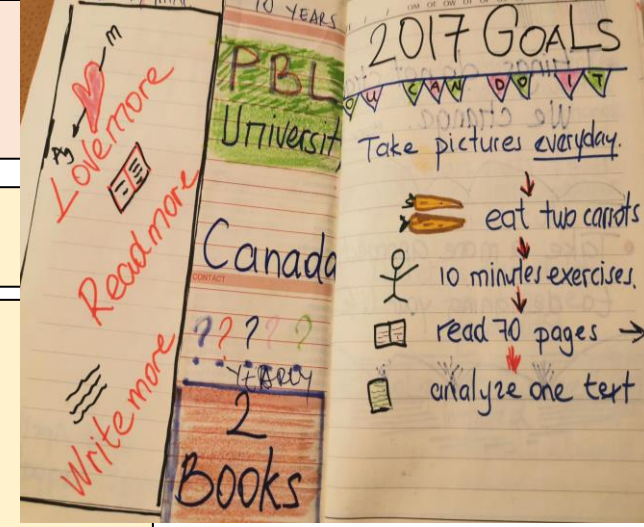 m
Love more
Read more
Write more
10 YEARS
PBL
Universit
Canada
CONTACT
? ? ? ? ?
YEARLY
2
Books
2017 GOALS
OU CAN DO IT
Take pictures everyday.
eat two carrots
10 minutes exercises.
read 70 pages →
analyze one text